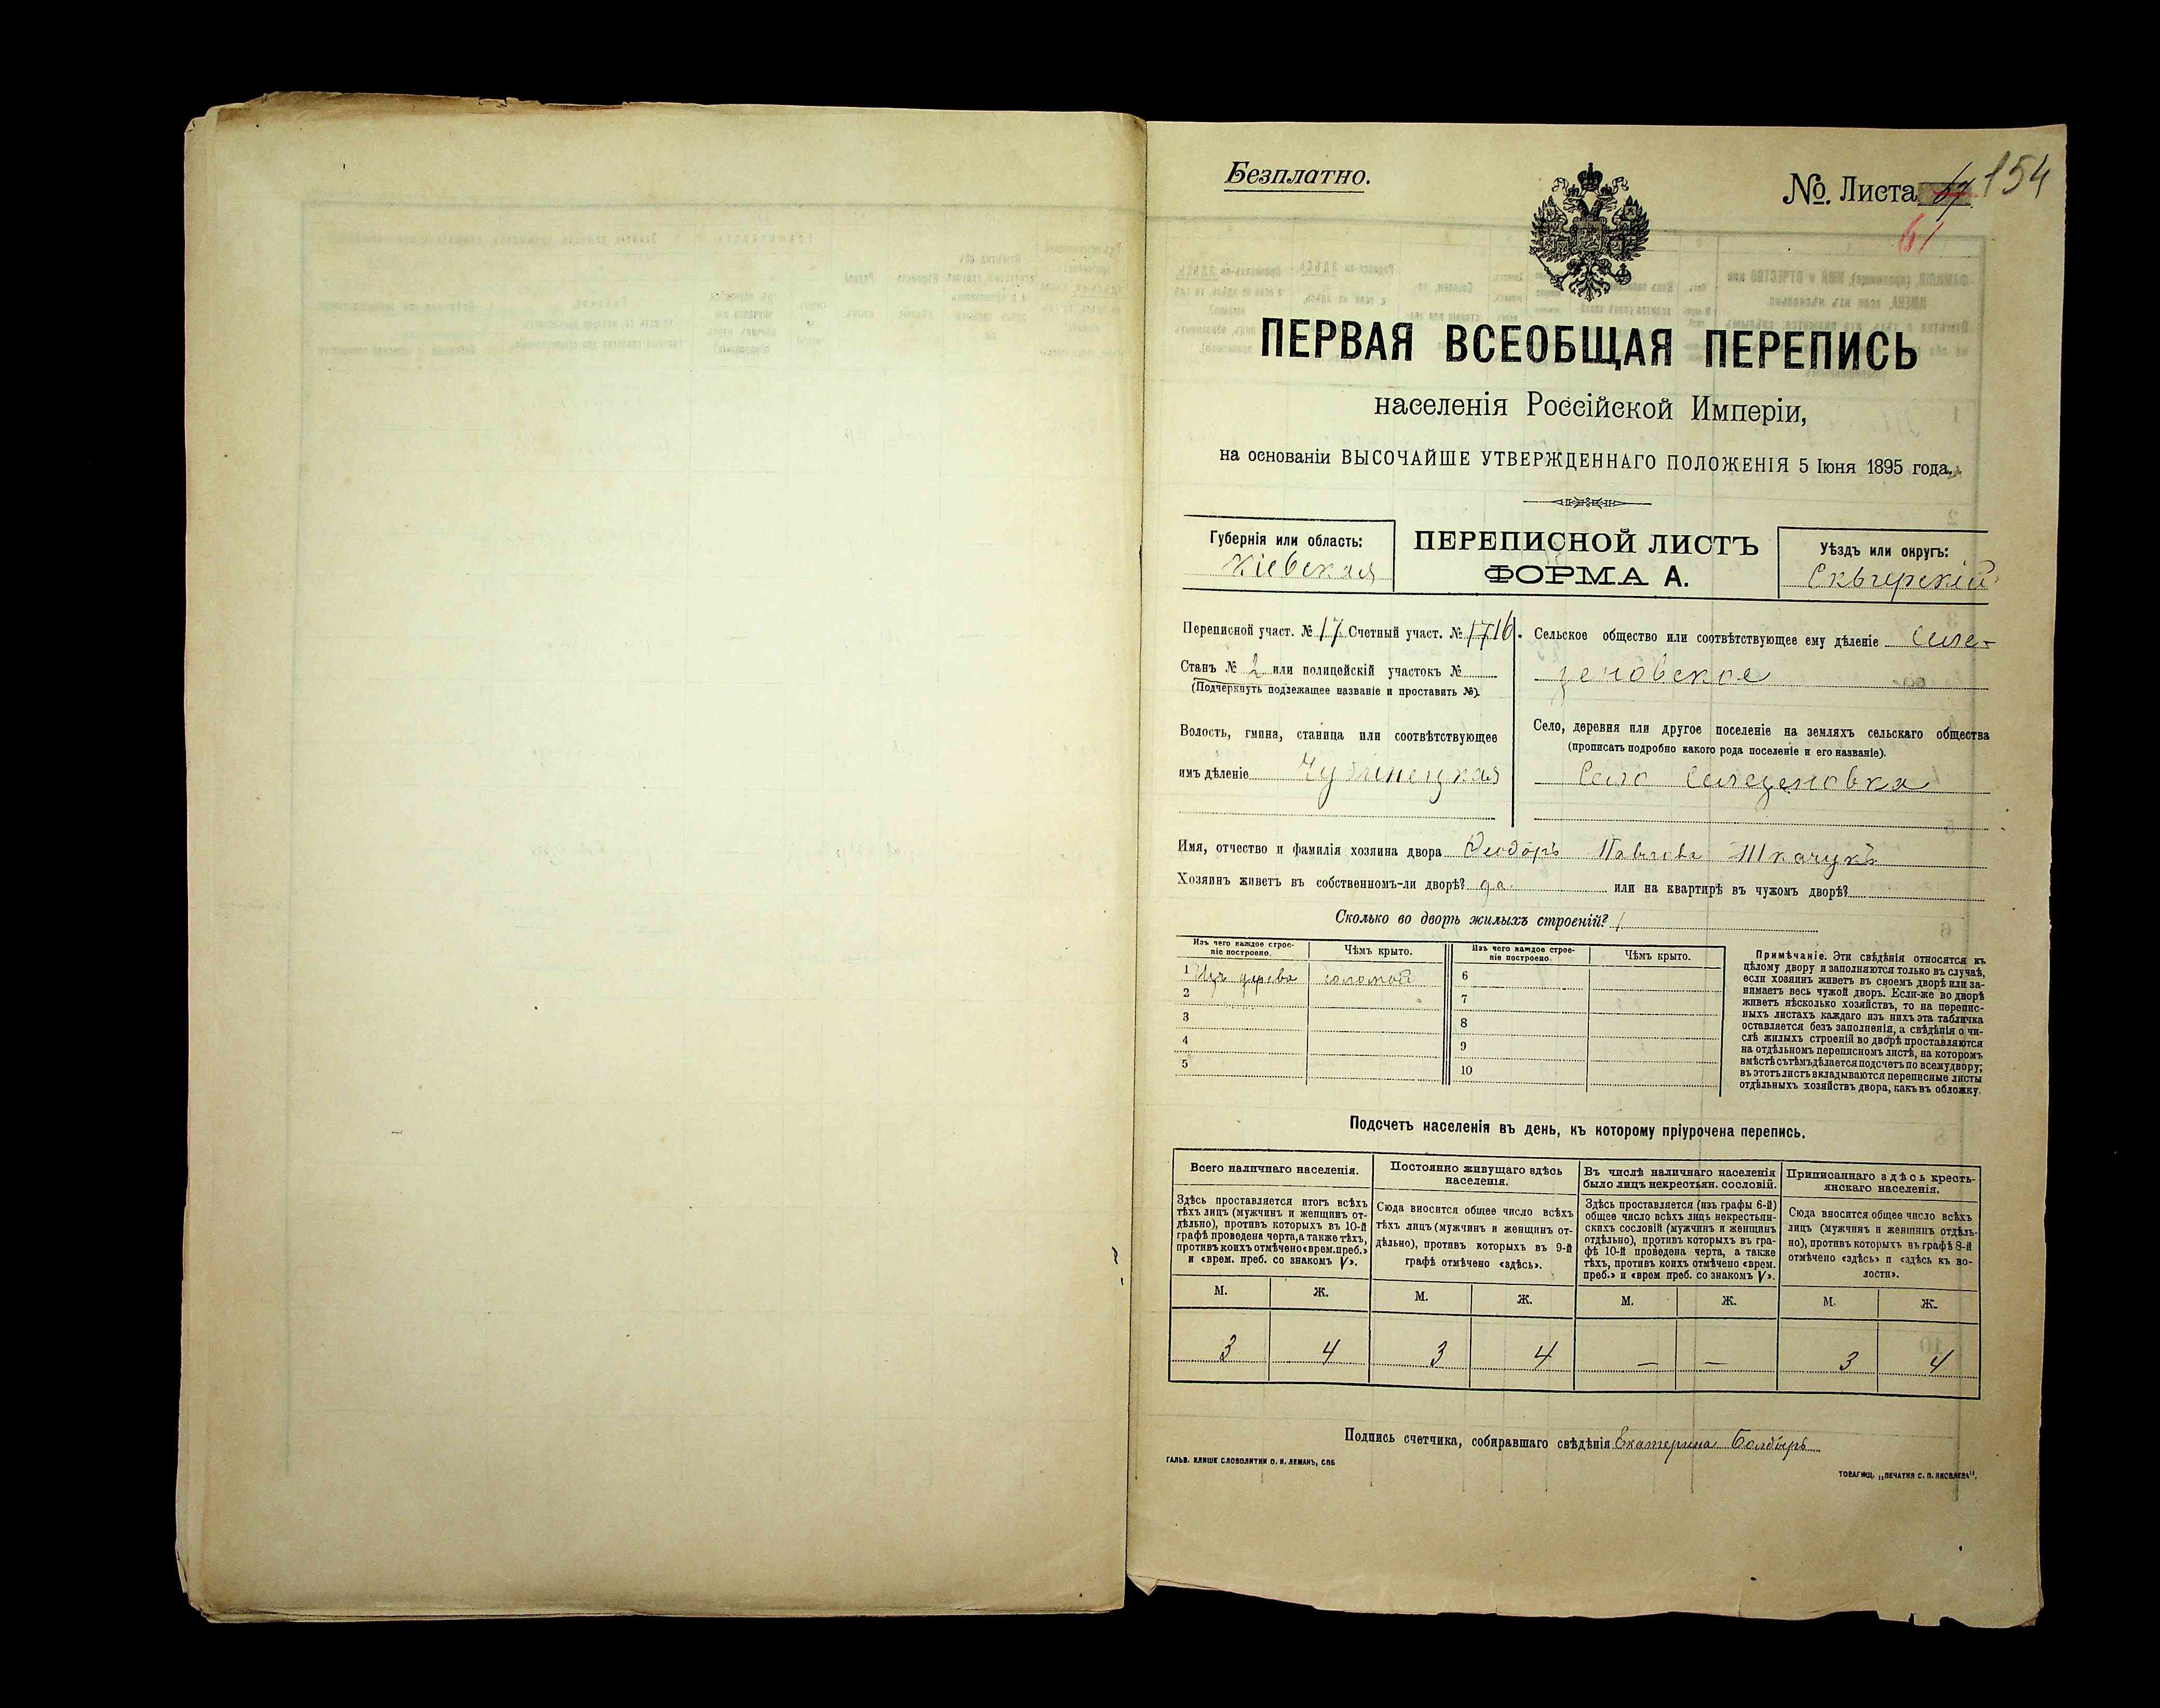 Безплатно.
№. Листа 154
61
ПЕРВАЯ ВСЕОБЩАЯ ПЕРЕПИСЬ
населенія Россійской Имперіи,
на основаніи ВЫСОЧАЙШЕ УТВЕРЖДЕННАГО ПОЛОЖЕНІЯ 5 Іюня 1895 года.
Губернія или область:
Кіевская
ПЕРЕПИСНОЙ ЛИСТЪ
ФОРМА А.
Уѣздъ или округъ:
Сквирскій
Переписной участ. № 17. Счетный участ. № 1716.
Станъ № 2 или полицейскій участокъ №
(Подчеркнуть подлежащее названіе и проставить №).
Волость, гмина, станица или соотвѣтствующее
имъ дѣленіе
Сельское общество или соотвѣтствующее ему дѣленіе
Село, деревня или другое поселеніе на земляхъ сельскаго общества
(прописать подробно какого рода поселеніе и его названіе).
Село
Имя, отчество и фамилія хозяина двора Ѳеодоръ Павлова Ткачукъ
Хозяинъ живетъ въ собственномъ-ли дворѣ? да или на квартирѣ въ чужомъ дворѣ?
Сколько во дворѣ жилыхъ строеній? 1
Изъ чего каждое строе-
ніе построено.
Чѣмъ крыто.
Изъ чего каждое строе-
ніе построено.
Чѣмъ крыто.
1 Изъ дерева соломой 6
2 7
3 8
4 9
5 10
Примѣчаніе. Эти свѣдѣнія относятся къ
цѣлому двору и заполняются только въ случаѣ,
если хозяинъ живетъ въ своемъ дворѣ или за-
нимаетъ весь чужой дворъ. Если-же во дворѣ
живетъ нѣсколько хозяйствъ, то на перепис-
ныхъ листахъ каждаго изъ нихъ эта табличка
оставляется безъ заполненія, а свѣдѣнія о чи-
слѣ жилыхъ строеній во дворѣ проставляются
на отдѣльномъ переписномъ листѣ, на которомъ
вмѣстѣ съ тѣмъ дѣлается подсчетъ по всему двору;
въ этотъ листъ вкладываются переписные листы
отдѣльныхъ хозяйствъ двора, какъ въ обложку.
Подсчетъ населенія въ день, къ которому пріурочена перепись.
Всего наличнаго населенія.
Здѣсь проставляется итогъ всѣхъ
тѣхъ лицъ (мужчинъ и женщинъ от-
дѣльно), противъ которыхъ въ 10-й
графѣ проведена черта, а также тѣхъ,
противъ коихъ отмѣчено «врем. преб.»
и «врем. преб. со знакомъ V».
Постоянно живущаго здѣсь
населенія.
Сюда вносится общее число всѣхъ
тѣхъ лицъ (мужчинъ и женщинъ от-
дѣльно), противъ которыхъ въ 9-й
графѣ отмѣчено «здѣсь».
Въ числѣ наличнаго населенія
было лицъ некрестьян. сословій.
Здѣсь проставляется (изъ графы 6-й)
общее число всѣхъ лицъ некрестьян-
скихъ сословій (мужчинъ и женщинъ
отдѣльно), противъ которыхъ въ гра-
фѣ 10-й проведена черта, а также
тѣхъ, противъ коихъ отмѣчено «врем.
преб.» и «врем преб. со знакомъ V».
Приписаннаго здѣсь кресть-
янскаго населенія.
Сюда вносится общее число всѣхъ
лицъ (мужчинъ и женщинъ отдѣль-
но), противъ которыхъ въ графѣ 8-й
отмѣчено «здѣсь» и «здѣсь къ во-
лости».
М. Ж. М. Ж. М. Ж. М. Ж.
3 4 3 4 — — 3 4
Подпись счетчика, собиравшаго свѣдѣнія Екатерина Болдырь
ГАЛЬВ. КЛИШЕ СЛОВОЛИТНИ О. И. ЛЕМАНЪ, СПБ
ТОВАРИЩ. „ПЕЧАТНЯ С. П. ЯКОВЛЕВА".